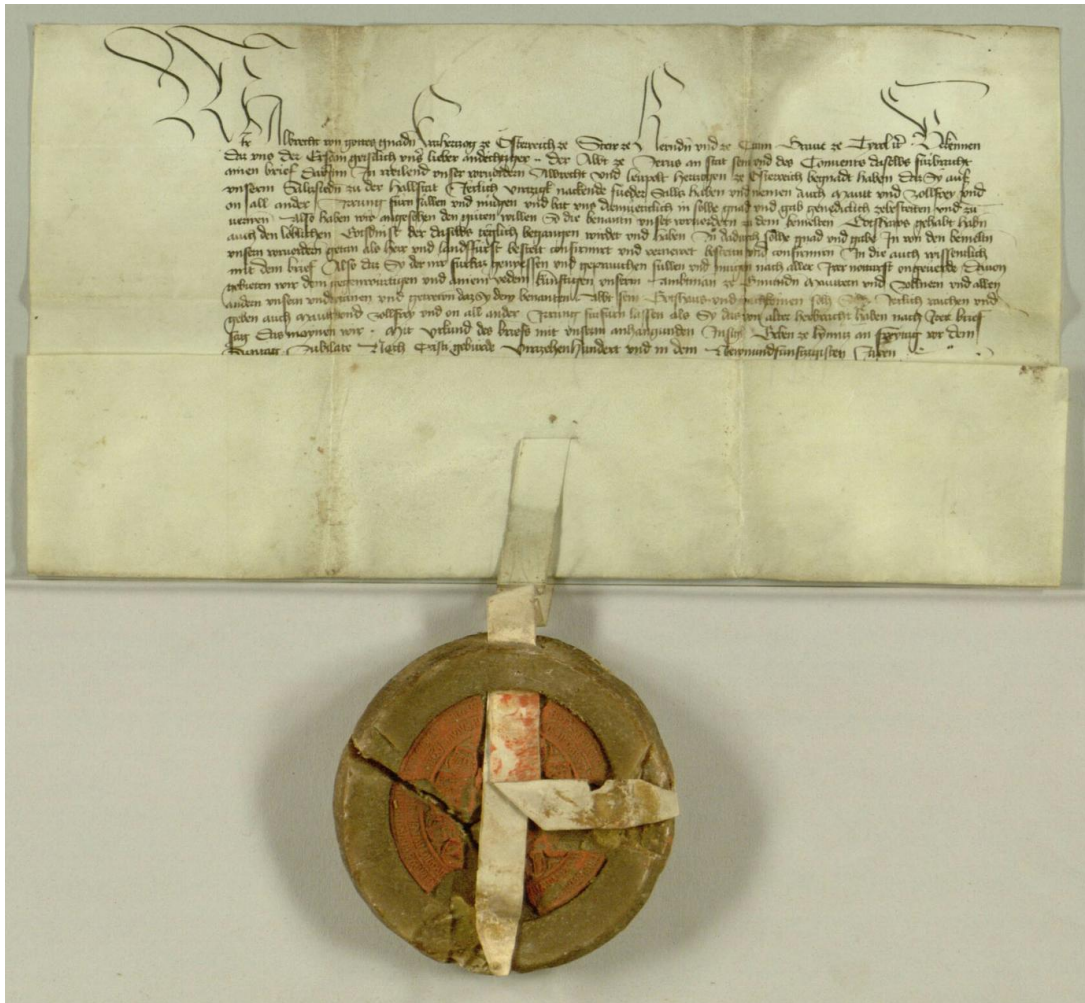 Wir Albrecht von gottes gnadn Ertzherzog ze Osterreich ze Steir ze Kernden und ze Crain Grave ze Tirol etc Bekennen
Daz uns der Ersam geistlich unser lieber andechtiger der Abbt ze an stat sein und des Convents daselbs furbracht
ainen brief Darinn In weilend unser vorvordern Albrecht und Leupolt Hertzogen ze Osterreich begnadt haben Daz Sy auf
unserm Salsieden zu der Hallstat Jerlich nackende fueder Saltz haben und nemen auch maut und zollfrey und
on all ander Irrung furn sullen und mugen und bat uns diemueticlich in solhe gnad und gab genediclich zebestetten und zu
vernewen Also haben wir angesehen den guten willen So die benanten unser vorvordern zu dem bemelten Gotshaws gehabt habn
auch den loblichen Gotsdinst der daselbs teglich begangen wirdet und haben In dadurch solhe gnad und gabe In von den bemelten
unsern vorvordern getan als herr und landsfurst bestett confirmirt und vernewet bestetten und confirmirn In die auch wissentlich
mit dem brief Also daz Sy der nu furbaz geniessen und geprauchen sullen und mugen nach aller Irer notturft ongeverde Davon
gebieten wir dem gegenwurtigen und ainem yedem kunftigen unserm ambtman ze Gmundn Mauttern und Zollnern und allen
andern unsern undertanen und getrewen daz sy dem benanten Abbt sein Gotshaus und nachkomen solh Saltz Jerlich raichen und
geben auch mauttfrey und zollfrey und on all ander Irrung furfuren lassen als Sy das von alter herbracht haben nach Irer brief
sag Das maynen wir Mit urkund des briefs mit unserm anhangunden Insigl Geben ze an Freytag vor dem
Suntag Jubilate Nach Cristi geburde Viertzehenhundert und in dem Newnundfunftzigisten Jaren